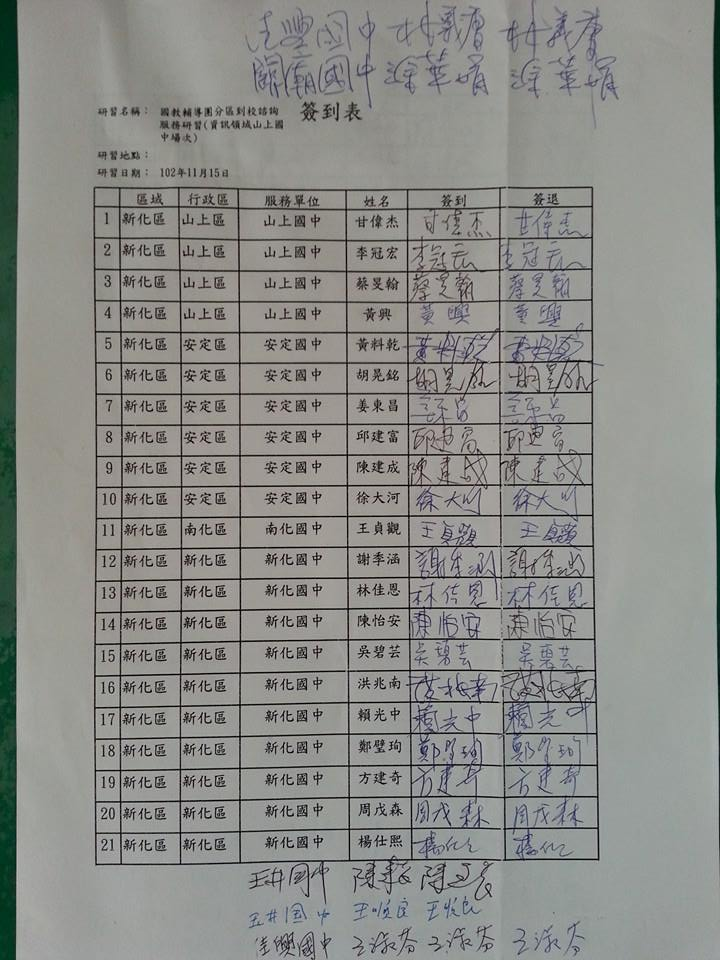 沈豐國中 林義書 林義書
關廟國中 涂華娟 涂華娟
簽到表
研習名稱： 國教輔導團分區到校諮詢
服務研習(資訊領域山上國
中場次)
研習地點：
研習日期： 102年11月15日
區域 行政區 服務單位 姓名 簽到 簽退
1 新化區 山上區 山上國中 甘偉杰 甘偉杰 甘偉杰
2 新化區 山上區 山上國中 李冠宏 李冠宏 李冠宏
3 新化區 山上區 山上國中 蔡旻翰 蔡旻翰 蔡旻翰
4 新化區 山上區 山上國中 黃興 黃興 黃興
5 新化區 安定區 安定國中 黃料乾 黃料乾 黃料乾
6 新化區 安定區 安定國中 胡晃銘 胡晃銘 胡晃銘
7 新化區 安定區 安定國中 姜東昌
8 新化區 安定區 安定國中 邱建富 邱建富 邱建富
9 新化區 安定區 安定國中 陳建成 陳建成 陳建成
10 新化區 安定區 安定國中 徐大河 徐大河 徐大河
11 新化區 南化區 南化國中 王貞觀 王貞觀 王貞觀
12 新化區 新化區 新化國中 謝季涵 謝季涵 謝季涵
13 新化區 新化區 新化國中 林佳恩 林佳恩 林佳恩
14 新化區 新化區 新化國中 陳怡安 陳怡安 陳怡安
15 新化區 新化區 新化國中 吳碧芸 吳碧芸 吳碧芸
16 新化區 新化區 新化國中 洪兆南
17 新化區 新化區 新化國中 賴光中 賴光中 賴光中
18 新化區 新化區 新化國中 鄭璧珣 鄭璧珣 鄭璧珣
19 新化區 新化區 新化國中 方建奇 方建奇 方建奇
20 新化區 新化區 新化國中 周戊森 周戊森 周戊森
21 新化區 新化區 新化國中 楊仕熙
玉井國中
玉井國中
佳興國中 王淑芬 王淑芬 王淑芬